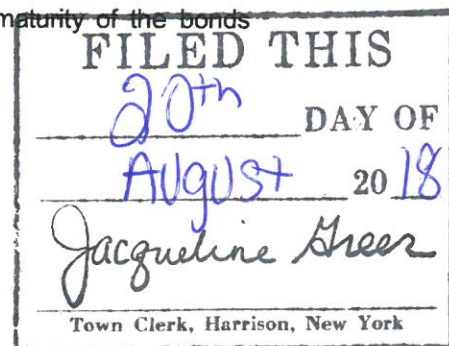 maturity of the bonds
FILED THIS
20th DAY OF
AUGUST 20 18
Jacqueline Greer
Town Clerk, Harrison, New York